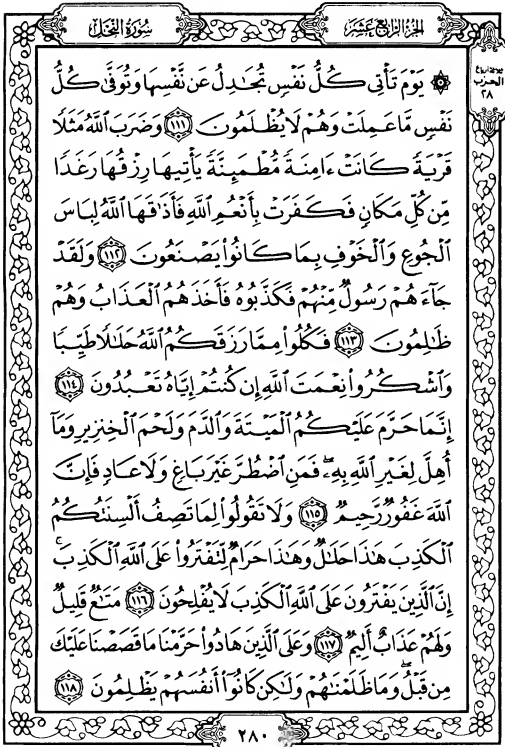 سُورَةُ النَّحۡلِ
الجُزءُ الرَّابِعَ عَشَرَ
ثلاثة أرباع
الحزب
٢٨
۞ يَوۡمَ تَأۡتِي كُلُّ نَفۡسٖ تُجَٰدِلُ عَن نَّفۡسِهَا وَتُوَفَّىٰ كُلُّ
نَفۡسٖ مَّا عَمِلَتۡ وَهُمۡ لَا يُظۡلَمُونَ ١١١ وَضَرَبَ ٱللَّهُ مَثَلٗا
قَرۡيَةٗ كَانَتۡ ءَامِنَةٗ مُّطۡمَئِنَّةٗ يَأۡتِيهَا رِزۡقُهَا رَغَدٗا
مِّن كُلِّ مَكَانٖ فَكَفَرَتۡ بِأَنۡعُمِ ٱللَّهِ فَأَذَٰقَهَا ٱللَّهُ لِبَاسَ
ٱلۡجُوعِ وَٱلۡخَوۡفِ بِمَا كَانُواْ يَصۡنَعُونَ ١١٢ وَلَقَدۡ
جَآءَهُمۡ رَسُولٞ مِّنۡهُمۡ فَكَذَّبُوهُ فَأَخَذَهُمُ ٱلۡعَذَابُ وَهُمۡ
ظَٰلِمُونَ ١١٣ فَكُلُواْ مِمَّا رَزَقَكُمُ ٱللَّهُ حَلَٰلٗا طَيِّبٗا
وَٱشۡكُرُواْ نِعۡمَتَ ٱللَّهِ إِن كُنتُمۡ إِيَّاهُ تَعۡبُدُونَ ١١٤
إِنَّمَا حَرَّمَ عَلَيۡكُمُ ٱلۡمَيۡتَةَ وَٱلدَّمَ وَلَحۡمَ ٱلۡخِنزِيرِ وَمَآ
أُهِلَّ لِغَيۡرِ ٱللَّهِ بِهِۦۖ فَمَنِ ٱضۡطُرَّ غَيۡرَ بَاغٖ وَلَا عَادٖ فَإِنَّ
ٱللَّهَ غَفُورٞ رَّحِيمٞ ١١٥ وَلَا تَقُولُواْ لِمَا تَصِفُ أَلۡسِنَتُكُمُ
ٱلۡكَذِبَ هَٰذَا حَلَٰلٞ وَهَٰذَا حَرَامٞ لِّتَفۡتَرُواْ عَلَى ٱللَّهِ ٱلۡكَذِبَۚ
إِنَّ ٱلَّذِينَ يَفۡتَرُونَ عَلَى ٱللَّهِ ٱلۡكَذِبَ لَا يُفۡلِحُونَ ١١٦ مَتَٰعٞ قَلِيلٞ
وَلَهُمۡ عَذَابٌ أَلِيمٞ ١١٧ وَعَلَى ٱلَّذِينَ هَادُواْ حَرَّمۡنَا مَا قَصَصۡنَا عَلَيۡكَ
مِن قَبۡلُۖ وَمَا ظَلَمۡنَٰهُمۡ وَلَٰكِن كَانُوٓاْ أَنفُسَهُمۡ يَظۡلِمُونَ ١١٨
٢٨٠